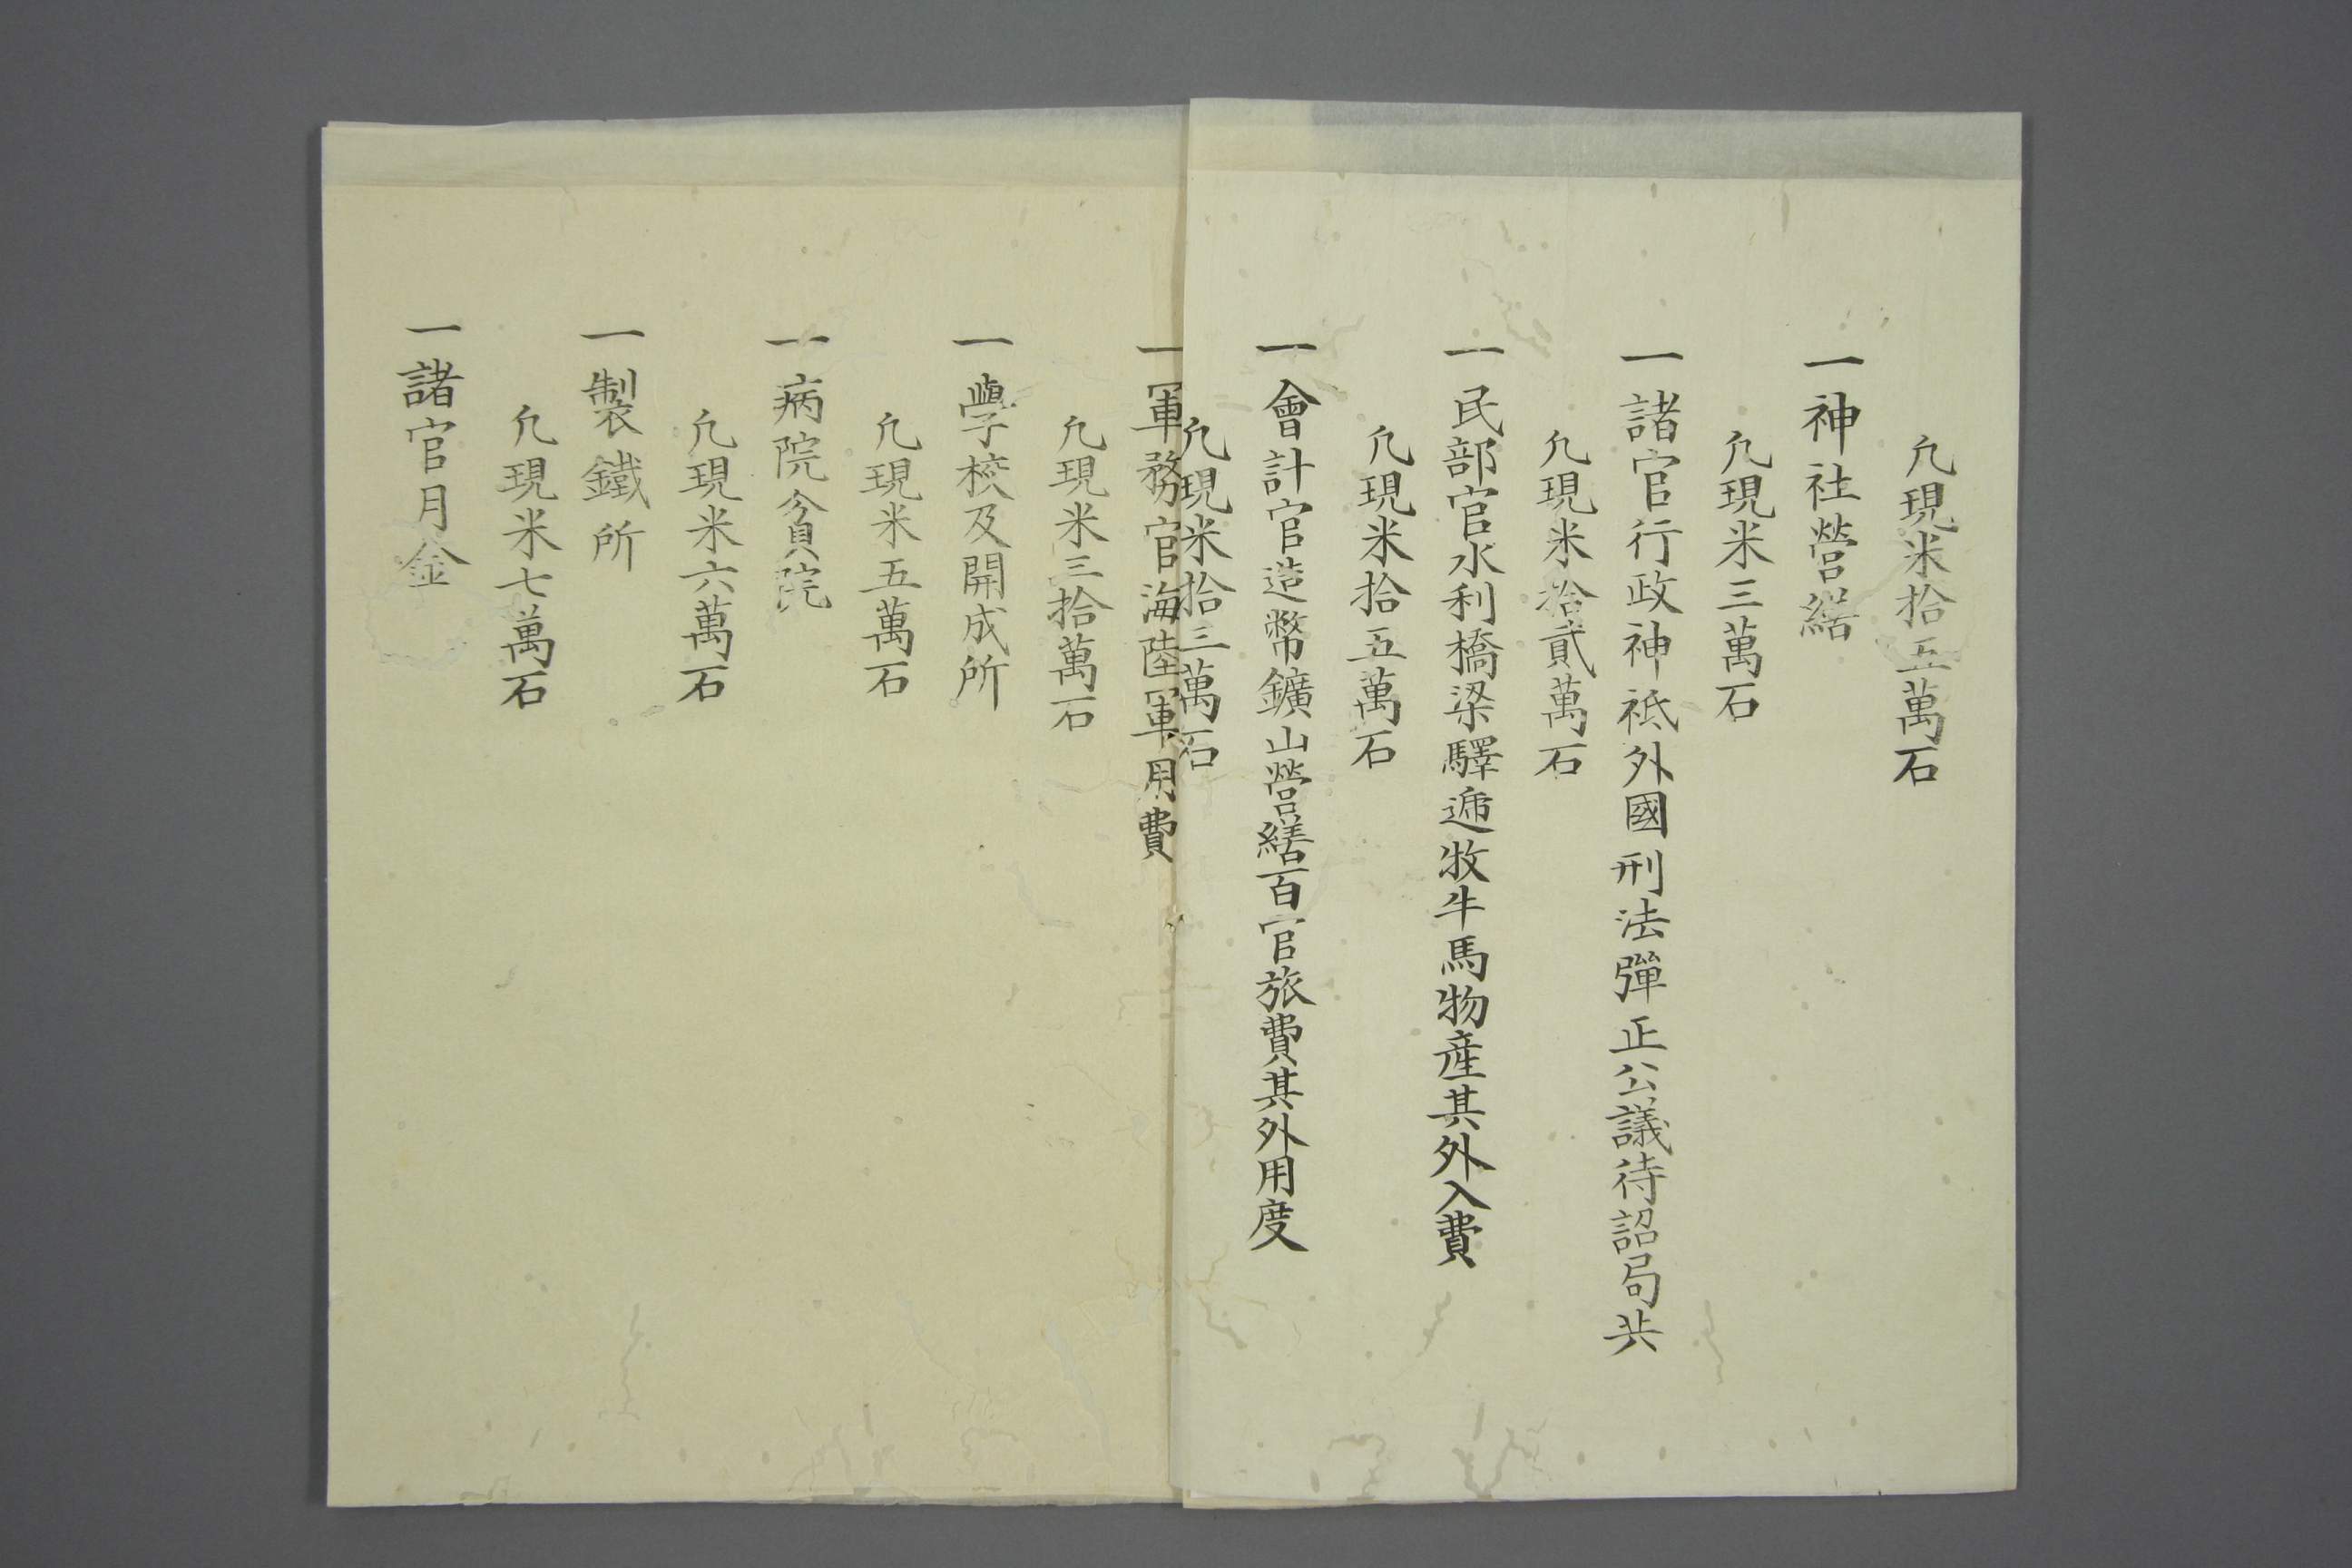 凢現米拾五萬石
一神社營繕
凢現米三萬石
一諸官行政神祗外國刑法彈正公議待詔局共
凢現米拾貳萬石
一民部官水利橋梁驛遞牧牛馬物産其外入費
凢現米拾五萬石
一會計官造幣鑛山營繕百官旅費其外用度
凢現米拾三萬石
一軍務官海陸軍用費
凢現米三拾萬石
一學校及開成所
凢現米五萬石
一病院貧院
凢現米六萬石
一製鐵所
凢現米七萬石
一諸官月金